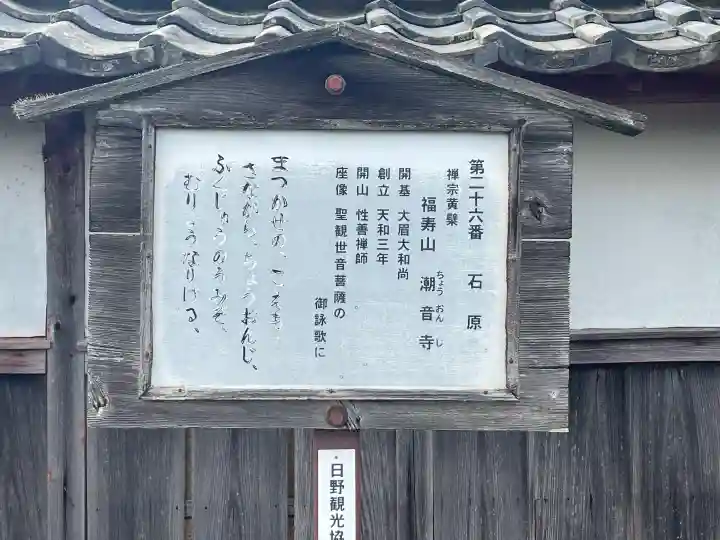 第二十六番 石原
禅宗黄檗
福寿山 潮音寺
ちょう おん じ
開基 大眉大和尚
創立 天和三年
開山 性善禅師
座像 聖観世音菩薩の
御詠歌に
まつかせの、こえも
さながら、ちょうおんじ、
ふくじゅうのうみぞ、
なりける、
日野観光協